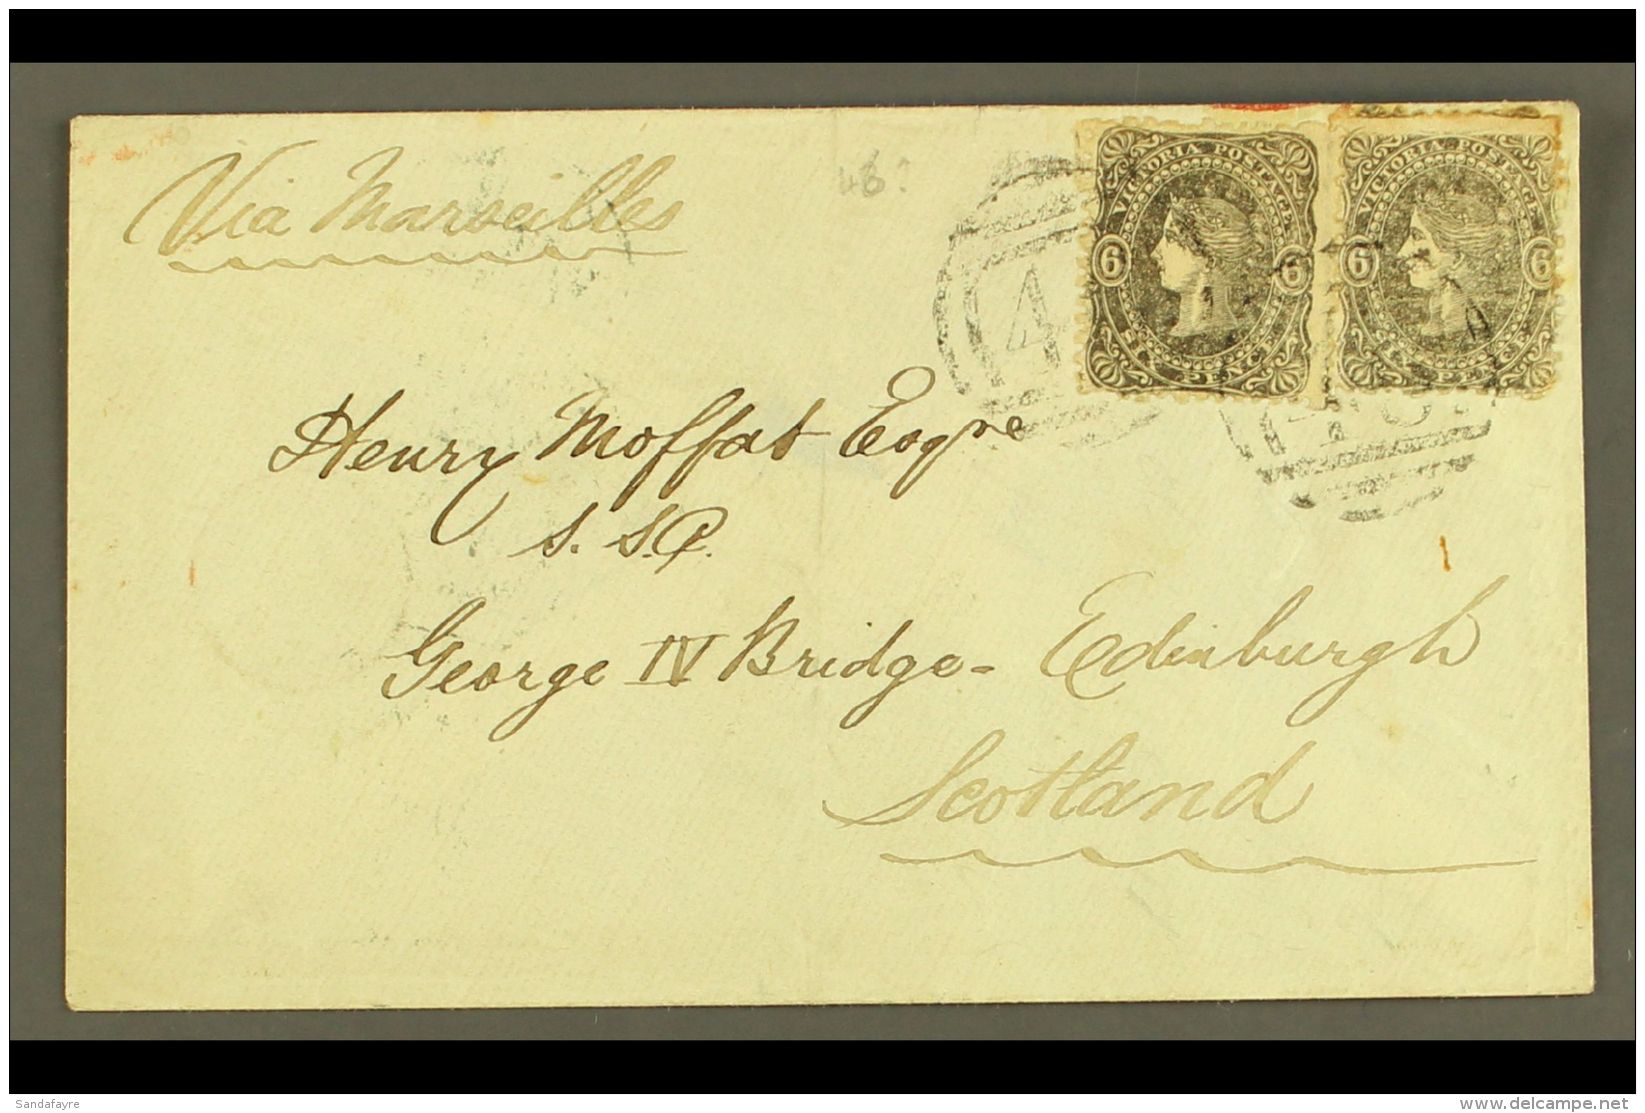 Via Marseilles
VICTORIA POSTAGE
6 6
SIX PENCE
VICTORIA POSTAGE
6 6
Henry Moffat Esqre
S. S.C.
George IV Bridge - Edinburgh
Scotland
Sandafayre
www.delcampe.net